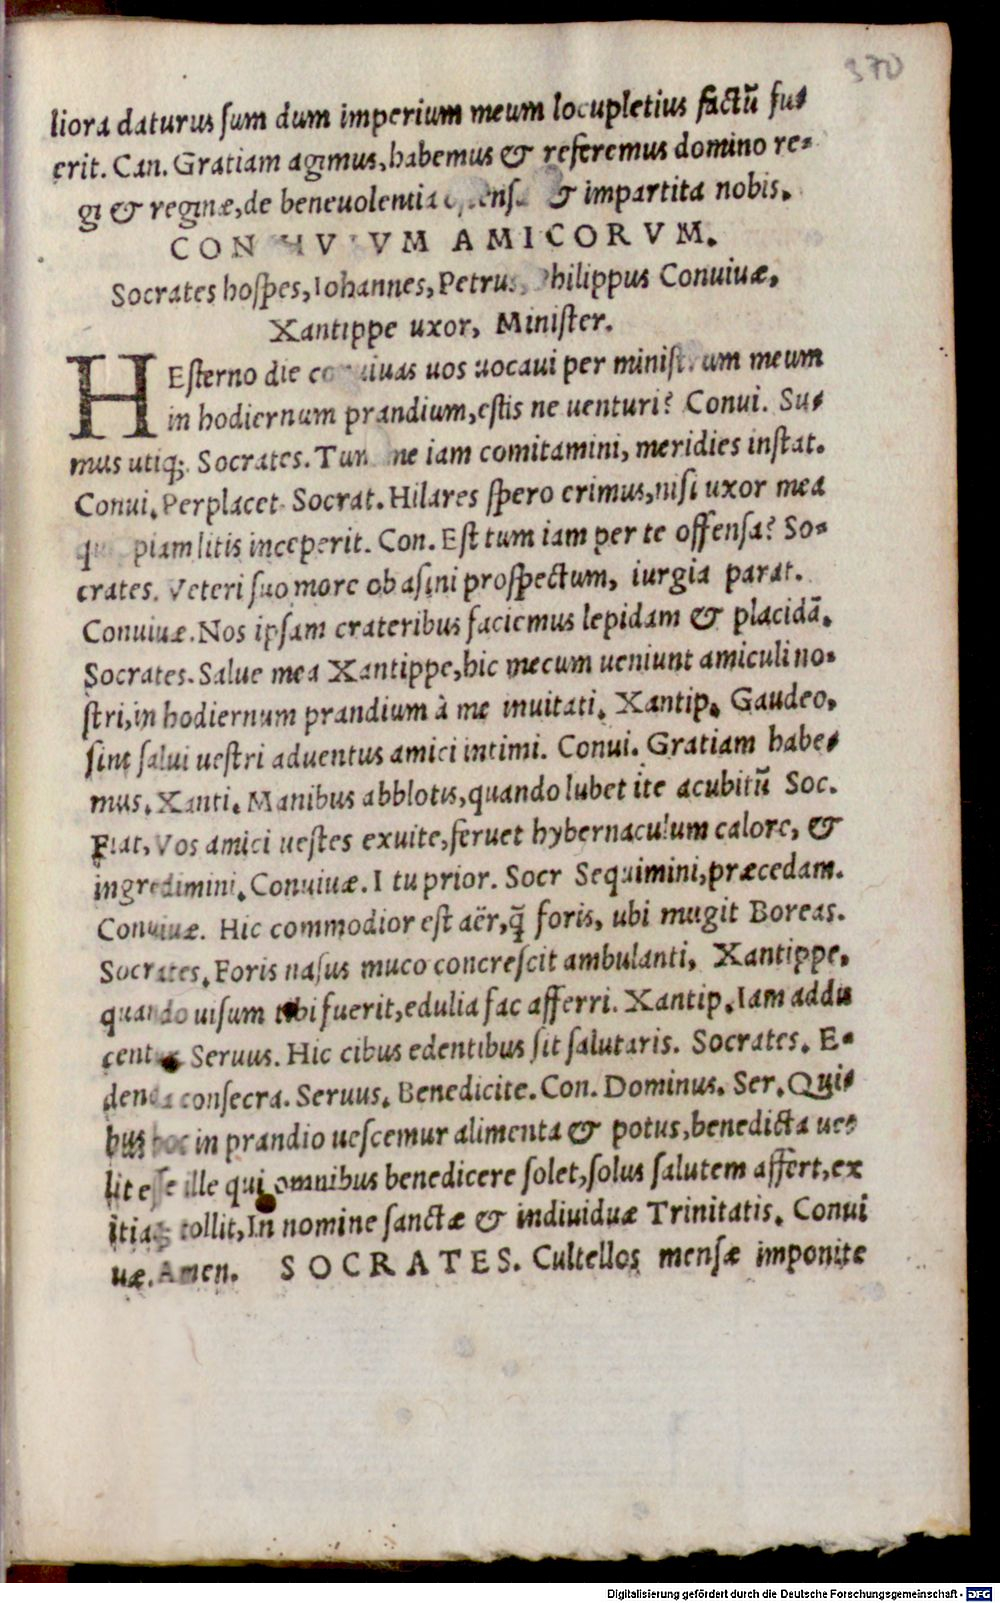 370
liora daturus sum dum imperium meum locupletius factũ fu⸗
erit. Can. Gratiam agimus, habemus & referemus domino re⸗
gi & reginæ, de beneuolentia & impartita nobis.
AMICORVM.
Socrates hospes, Iohannes, Petrus, Philippus Conuiuæ,
Xantippe uxor, Minister.
HEsterno die uos uocaui per ministrum meum
in hodiernum prandium, estis ne uenturi? Conui. Su⸗
mus utiq;. Socrates. ne iam comitamini, meridies instat.
Conui. Perplacet. Socrat. Hilares spero erimus, nisi uxor mea
piam litis inceperit. Con. Est tum iam per te offensa? So⸗
crates. Veteri suo more ob asini prospectum, iurgia parat.
Conuiuæ. Nos ipsam crateribus faciemus lepidam & placidã.
Socrates. Salue mea Xantippe, hic mecum ueniunt amiculi no⸗
stri, in hodiernum prandium à me inuitati. Xantip. Gaudeo,
sint salui uestri aduentus amici intimi. Conui. Gratiam habe⸗
mus. Xanti. Manibus abblotis, quando lubet ite acubitũ Soc.
Fiat, Vos amici uestes exuite, feruet hybernaculum calore, &
ingredimini. Conuiuæ. I tu prior. Socr Sequimini, præcedam.
Conuiuæ. Hic commodior est aër, q̃ foris, ubi mugit Boreas.
Socrates. Foris nasus muco concrescit ambulanti, Xantippe,
quando uisum tibi fuerit, edulia fac afferri. Xantip. Iam addu
centur Seruus. Hic cibus edentibus sit salutaris. Socrates. E⸗
denda consecra. Seruus. Benedicite. Con. Dominus. Ser. Qui⸗
bus hoc in prandio uescemur alimenta & potus, benedicta ue⸗
lit esse ille qui omnibus benedicere solet, solus salutem affert, ex
itiaq; tollit, In nomine sanctæ & indiuiduæ Trinitatis. Conui
uæ. Amen. SOCRATES. Cultellos mensæ imponite
Digitalisierung gefördert durch die Deutsche Forschungsgemeinschaft - DFG